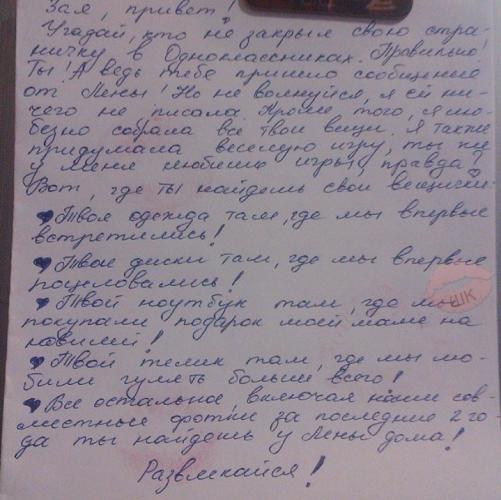 Зая, привет!
Угадай, кто не закрыл свою стра-
ничку в Одноклассниках. Правильно!
Ты! А ведь тебе пришло сообщение
от Лены! Но не волнуйся, я ей ни-
чего не писала. Кроме того, я лю-
безно собрала все твои вещи. Я также
придумала веселую игру, ты же
у меня любишь игры, правда?
Вот, где ты найдешь свои вещички:
♥Твоя одежда там, где мы впервые
встретились!
♥Твои диски там, где мы впервые
поцеловались!
♥Твой ноутбук там, где мы
покупали подарок моей маме на
юбилей!
♥Твой телик там, где мы лю-
били гулять больше всего!
♥Все остальное, включая наши сов-
местные фотки за последние 2 го-
да ты найдешь у Лены дома!
Развлекайся!
ШК